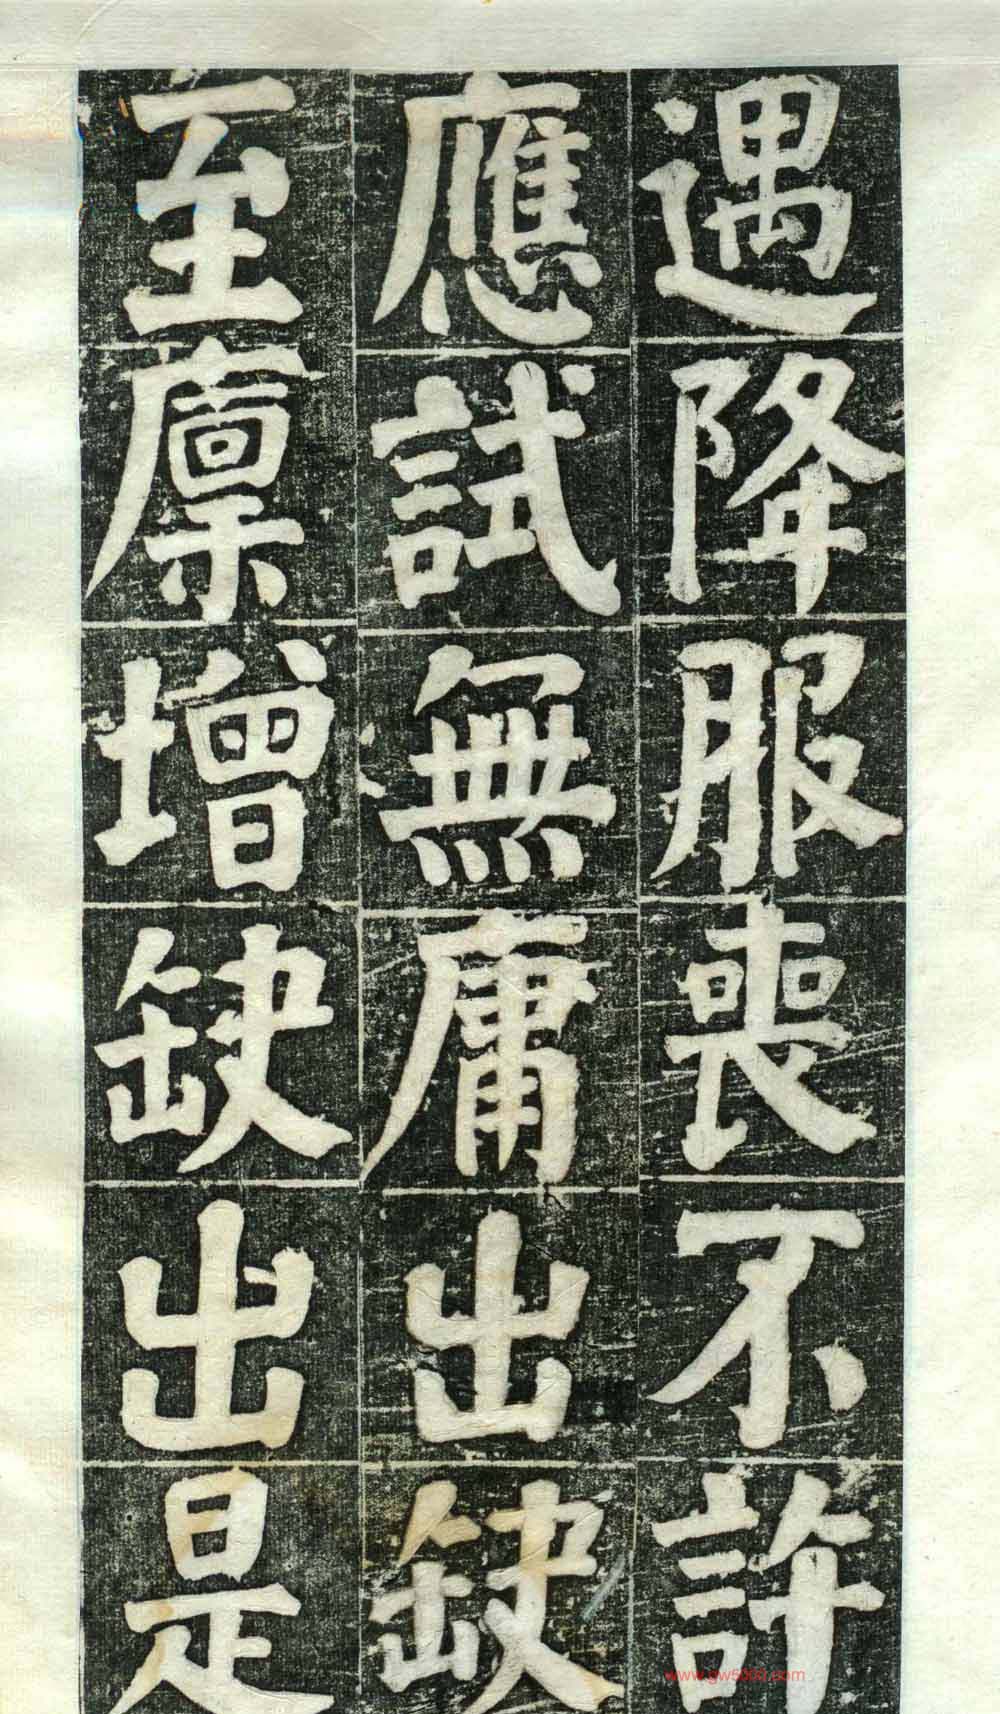 遇降服喪不許
應試無庸出缺
至廩增缺出是
www.gw5000.com